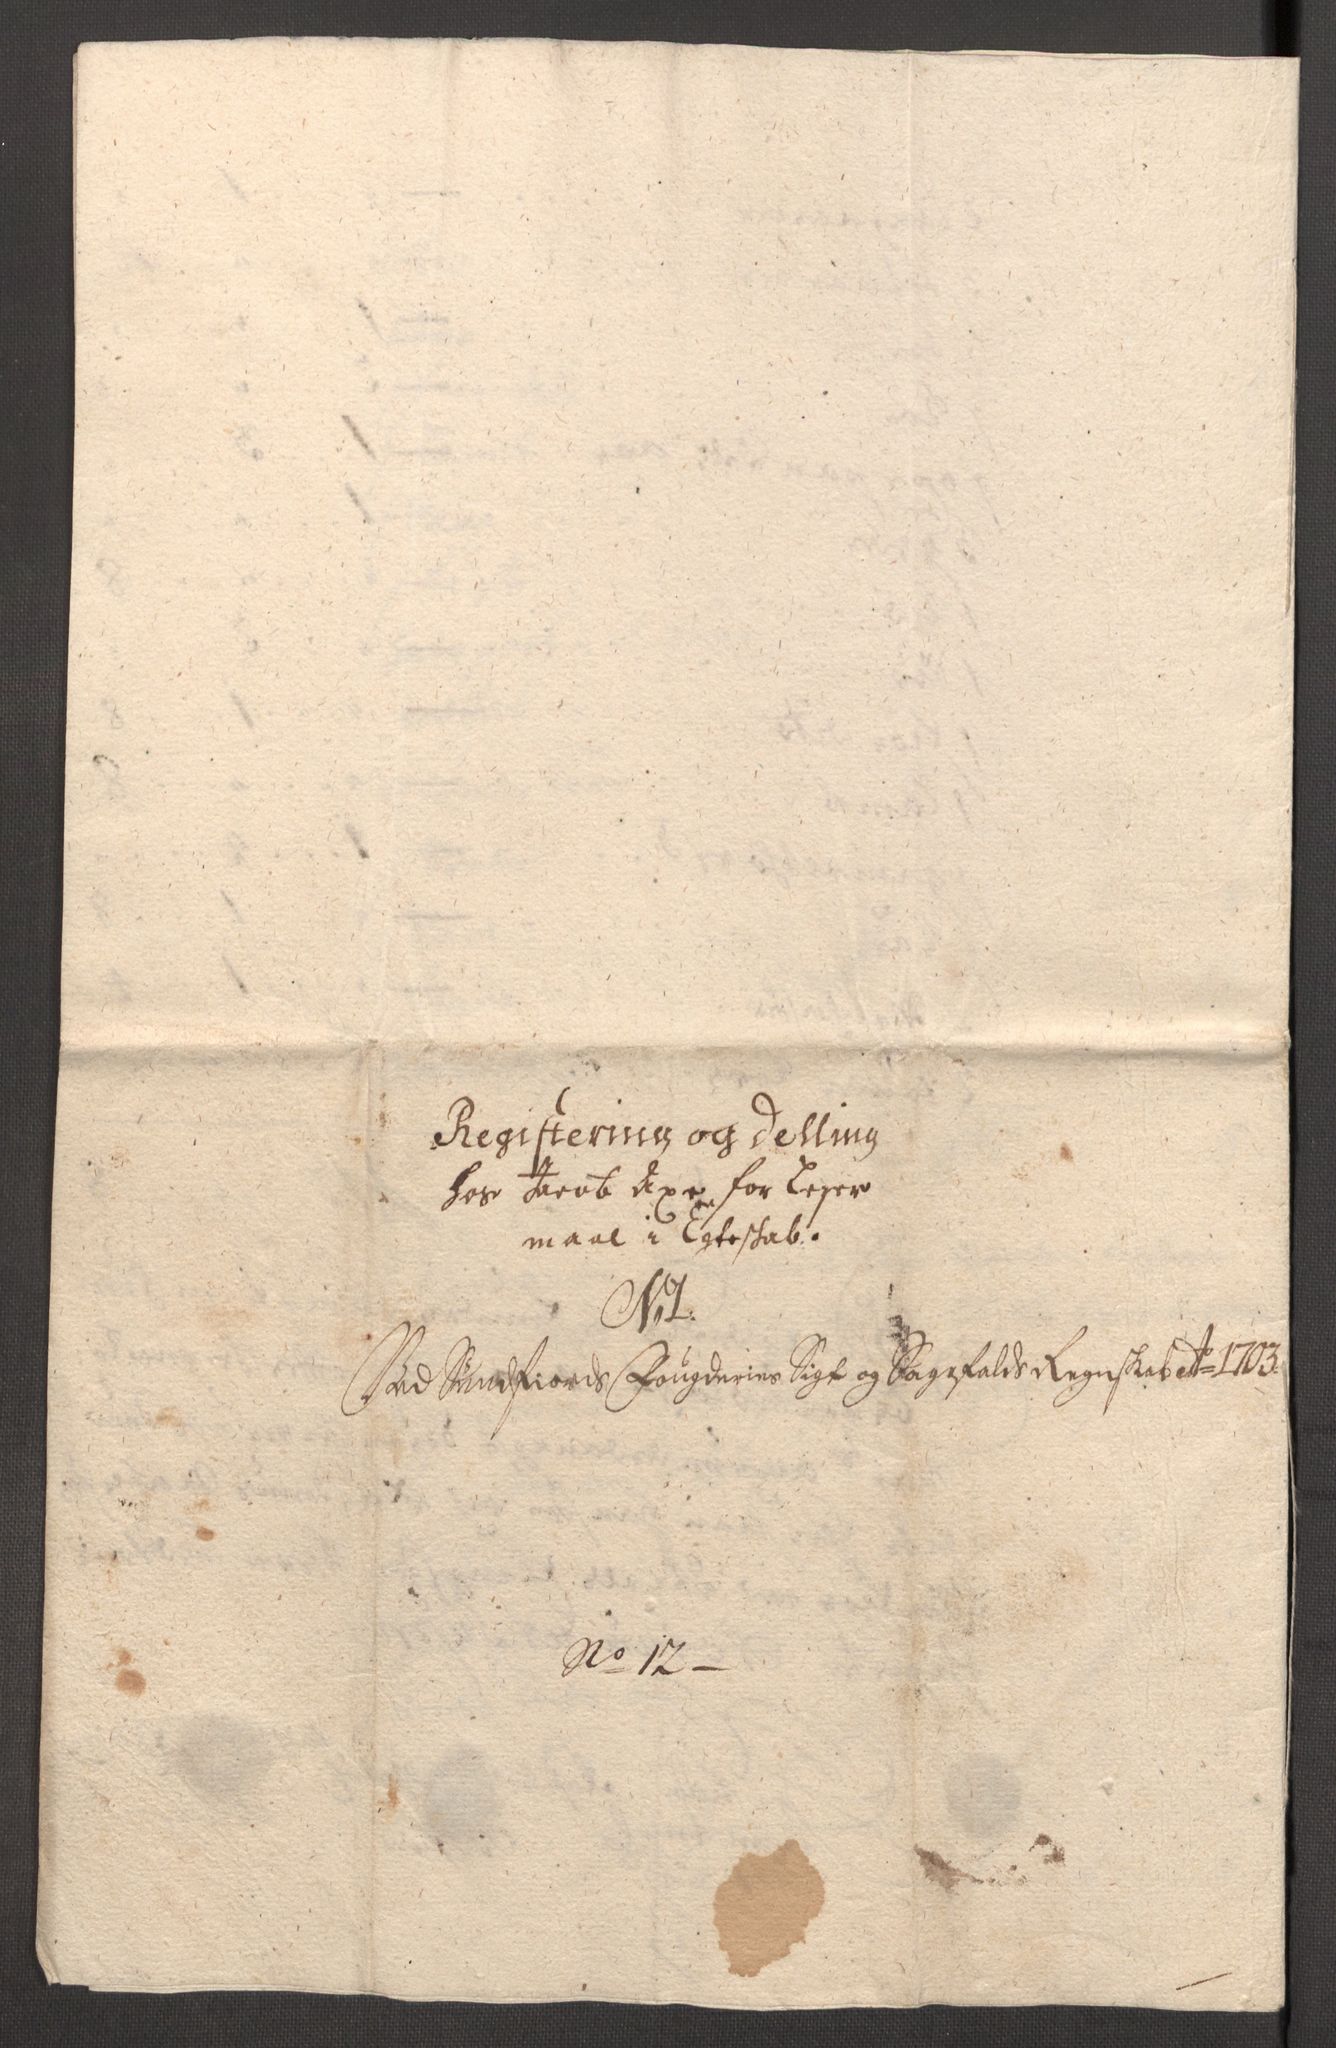 Registering og Delling
hos Jacob Axe for Leger
maal i Egteskab.
No 1.
Ved Sundfiords Fougderies Sigt og Sagefalds Regnskab Ao 1703.
No 12 —